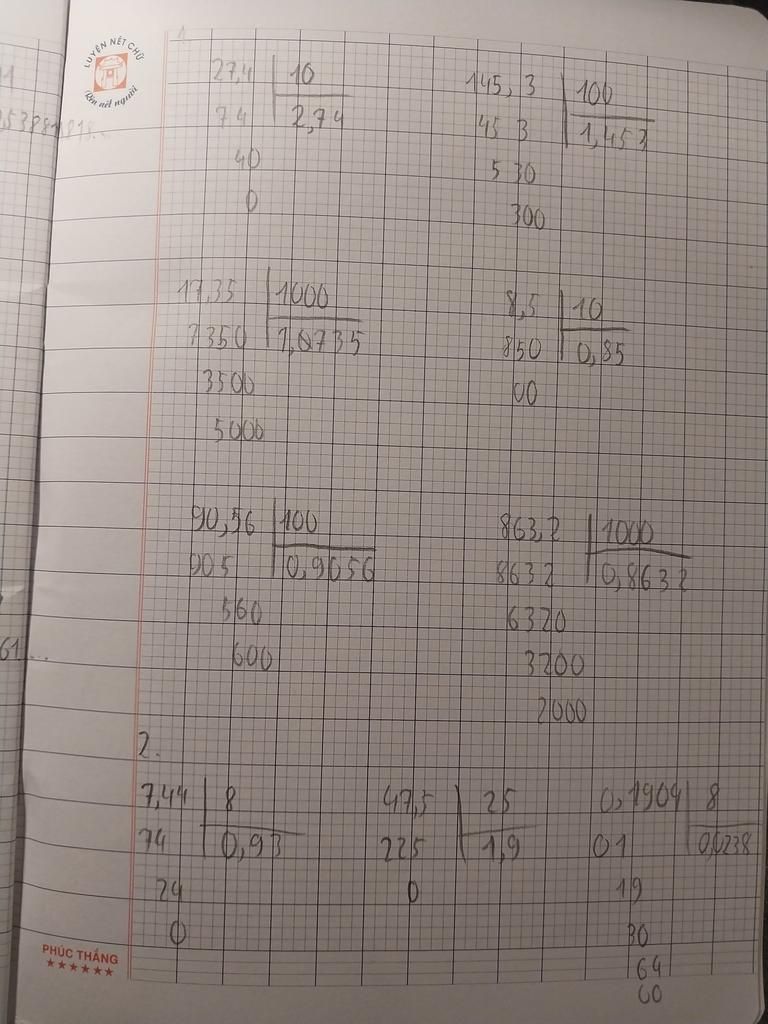 LUYỆN NẾT CHỮ
Rèn nết người
1.
27,4 10 145,3 100
74 2,74 45 3 1,453
40 5 30
0 300
17,35 1000 8,5 10
7350 1,0735 850 0,85
3500 00
5000
90,56 100 863,2 1000
905 0,9056 8632 0,8632
560 6320
600 3200
2000
2.
7,44 8 47,5 25 0,1904 8
74 0,93 225 1,9 01 0,0238
24 0 19
0 30
64
60
PHÚC THẮNG
★★★★★★
61...